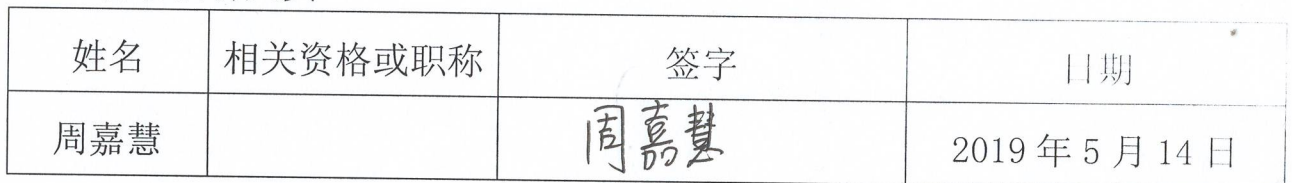 姓名 相关资格或职称 签字 日期
周嘉慧 周嘉慧 2019年5月14日